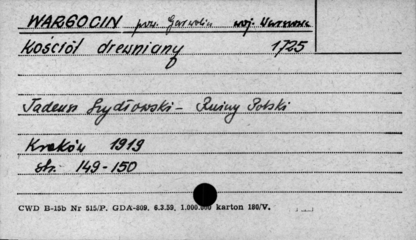 WARGOCIN pow. Garwolin woj. Warszawa
Kościół drewniany 1725
Tadeusz Szydłowski - Ruiny Polski
Kraków 1919
str. 149-150
CWD B-15b Nr 515/P. GDA-809. 6.3.59. 1.000.000 karton 180/V.